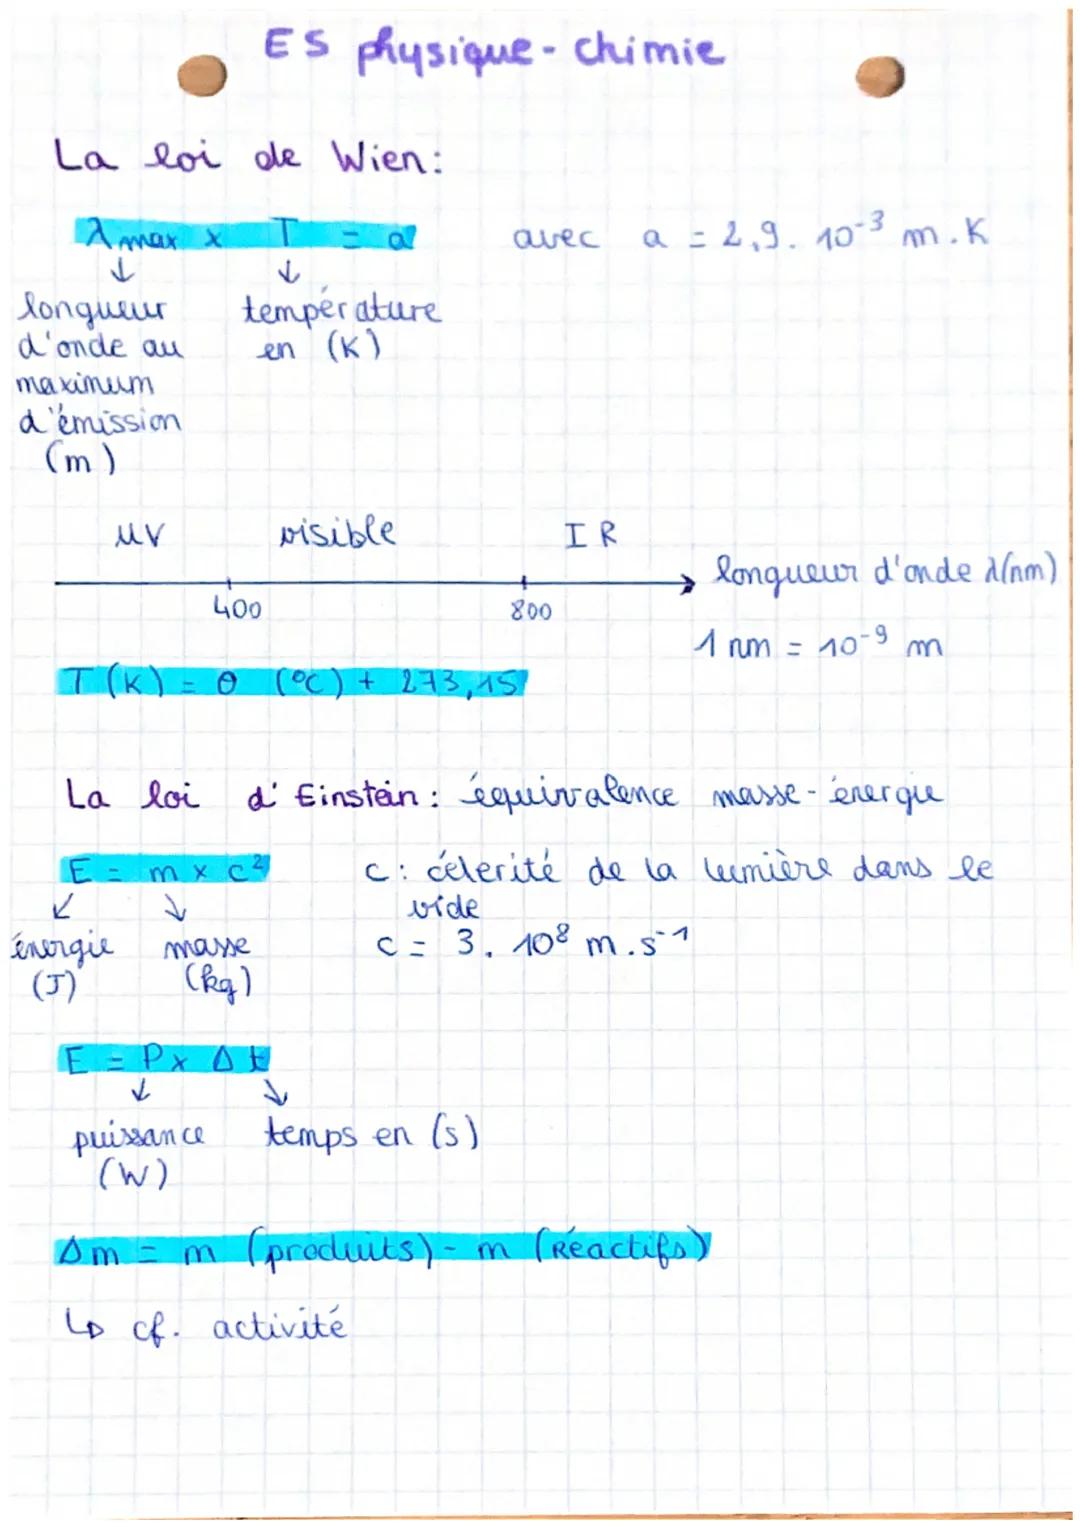 ES physique-chimie
La loi de Wien:
λ max x T = a avec a = 2,9. 10⁻³ m.K
↓ ↓
longueur température
d'onde au en (K)
maximum
d'émission
(m)
UV visible IR
longueur d'onde λ(nm)
400 800
1 nm = 10⁻⁹ m
T (K) = θ (°C) + 273,15
La loi d'Einstein: équivalence masse-énergie
E = m x c² c: célerité de la lumière dans le
vide
énergie masse c = 3. 10⁸ m.s⁻¹
(J) (kg)
E = P x Δt
puissance temps en (s)
(W)
Δm = m (produits) - m (Réactifs)
↳ cf. activité